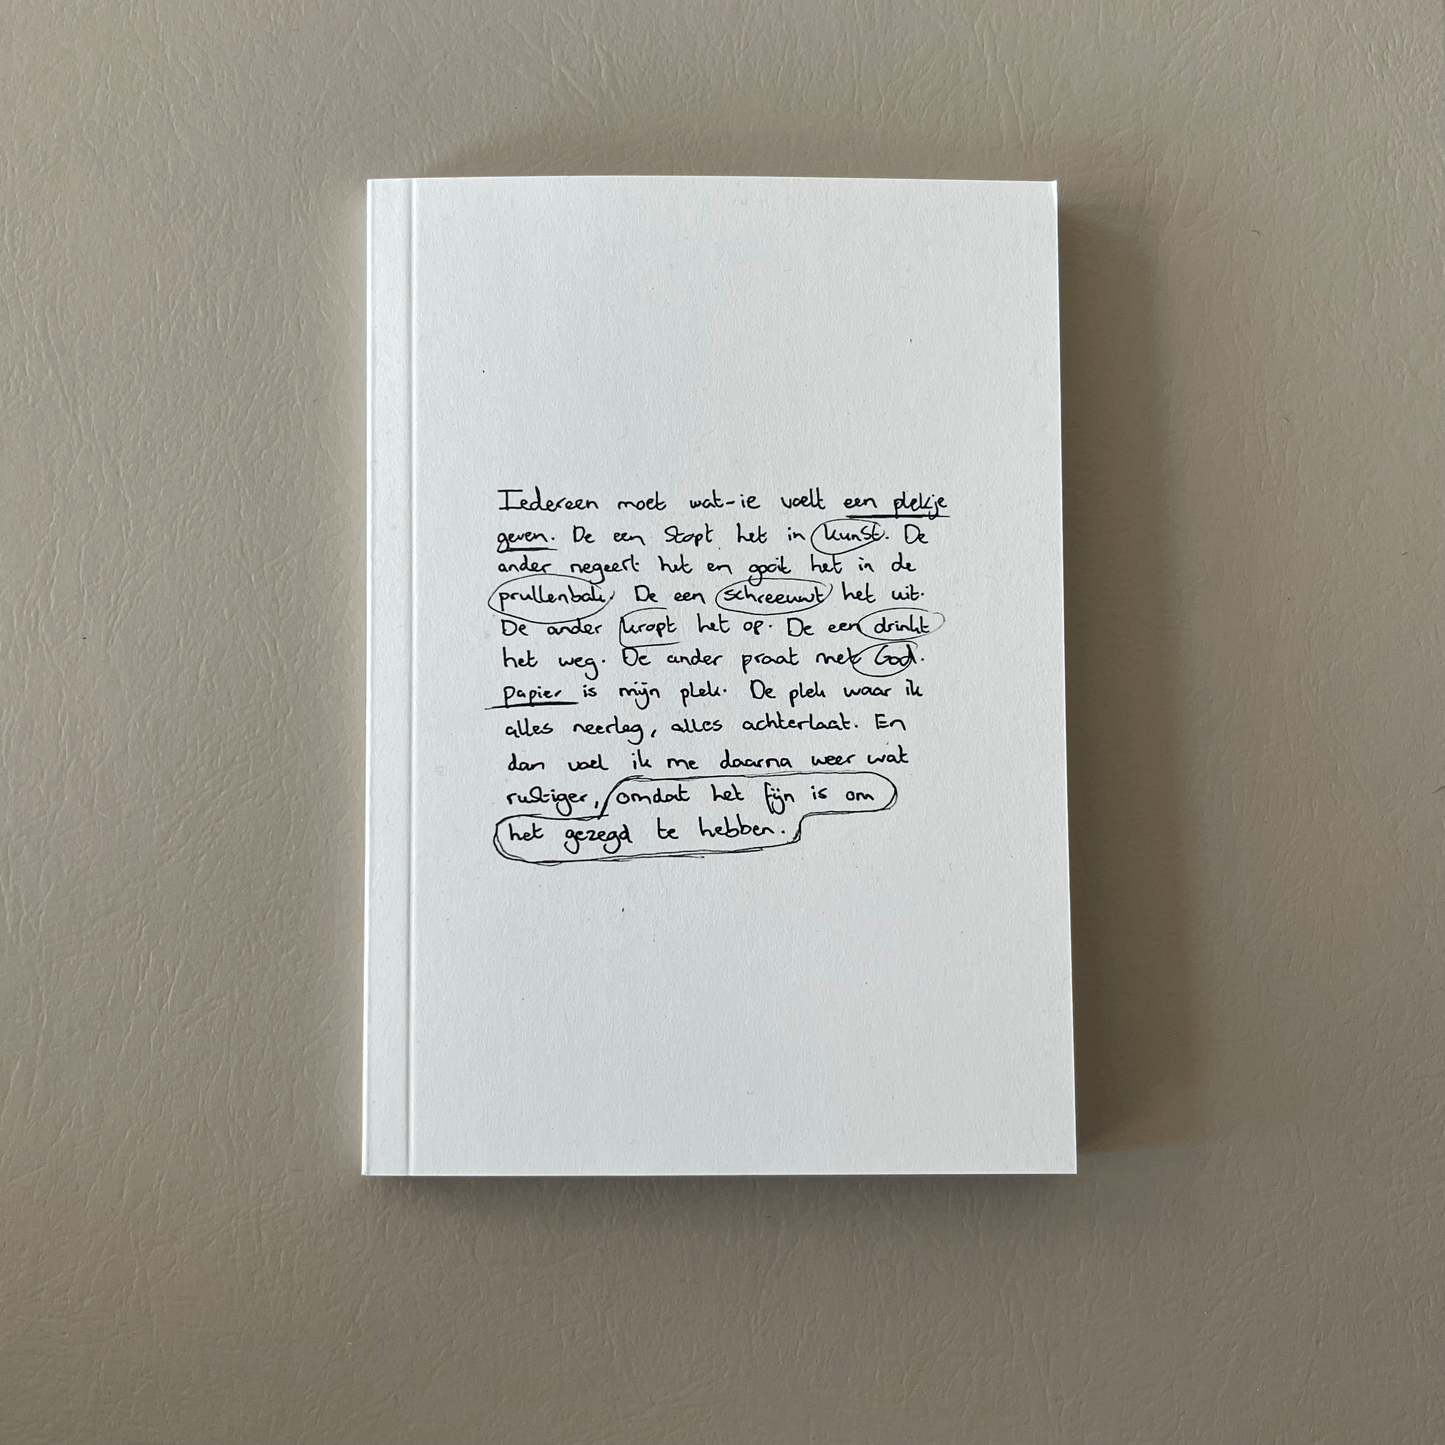 Iedereen moet wat-ie voelt een plekje
geven. De een stopt het in kunst. De
ander negeert het en gooit het in de
prullenbak. De een schreeuwt het uit.
De ander kropt het op. De een drinkt
het weg. De ander praat met God.
Papier is mijn plek. De plek waar ik
alles neerleg, alles achterlaat. En
dan voel ik me daarna weer wat
rustiger, omdat het fijn is om
het gezegd te hebben.